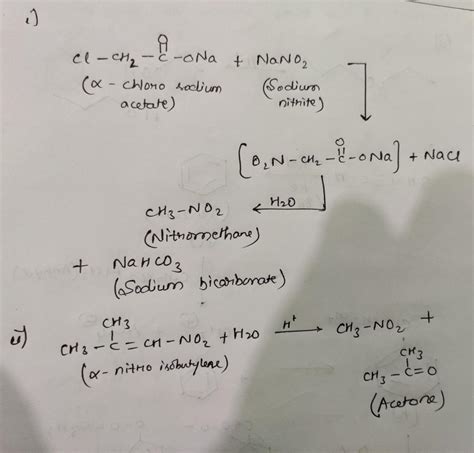 i)
O
Cl - CH2 - C - ONa + NaNO2
(α - chloro sodium (Sodium
acetate) nitrite)
O
[O2N - CH2 - C - ONa] + NaCl
CH3 - NO2 ← H2O
(Nitromethane)
+ NaHCO3
(Sodium bicarbonate)
CH3
ii) CH3 - C = CH - NO2 + H2O H+ → CH3 - NO2 +
(α - nitro isobutylene)
CH3
CH3 - C = O
(Acetone)